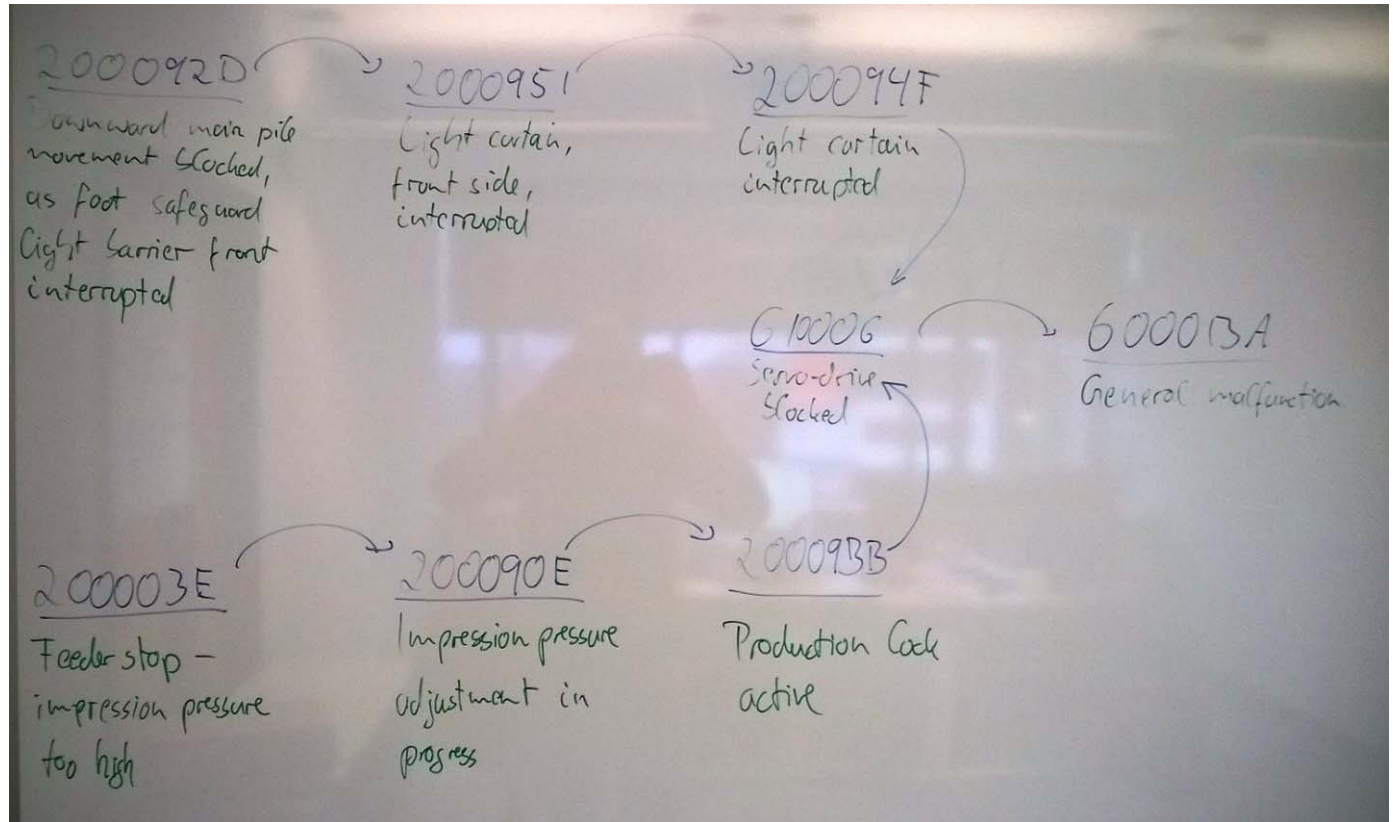 200092D
Downward main pile
movement blocked,
as foot safeguard
light barrier front
interrupted
2000951
Light curtain,
front side,
interrupted
200094F
Light curtain
interrupted
610006
Servo-drive
blocked
6000BA
General malfunction
200003E
Feeder stop -
impression pressure
too high
200090E
Impression pressure
adjustment in
progress
20009BB
Production lock
active